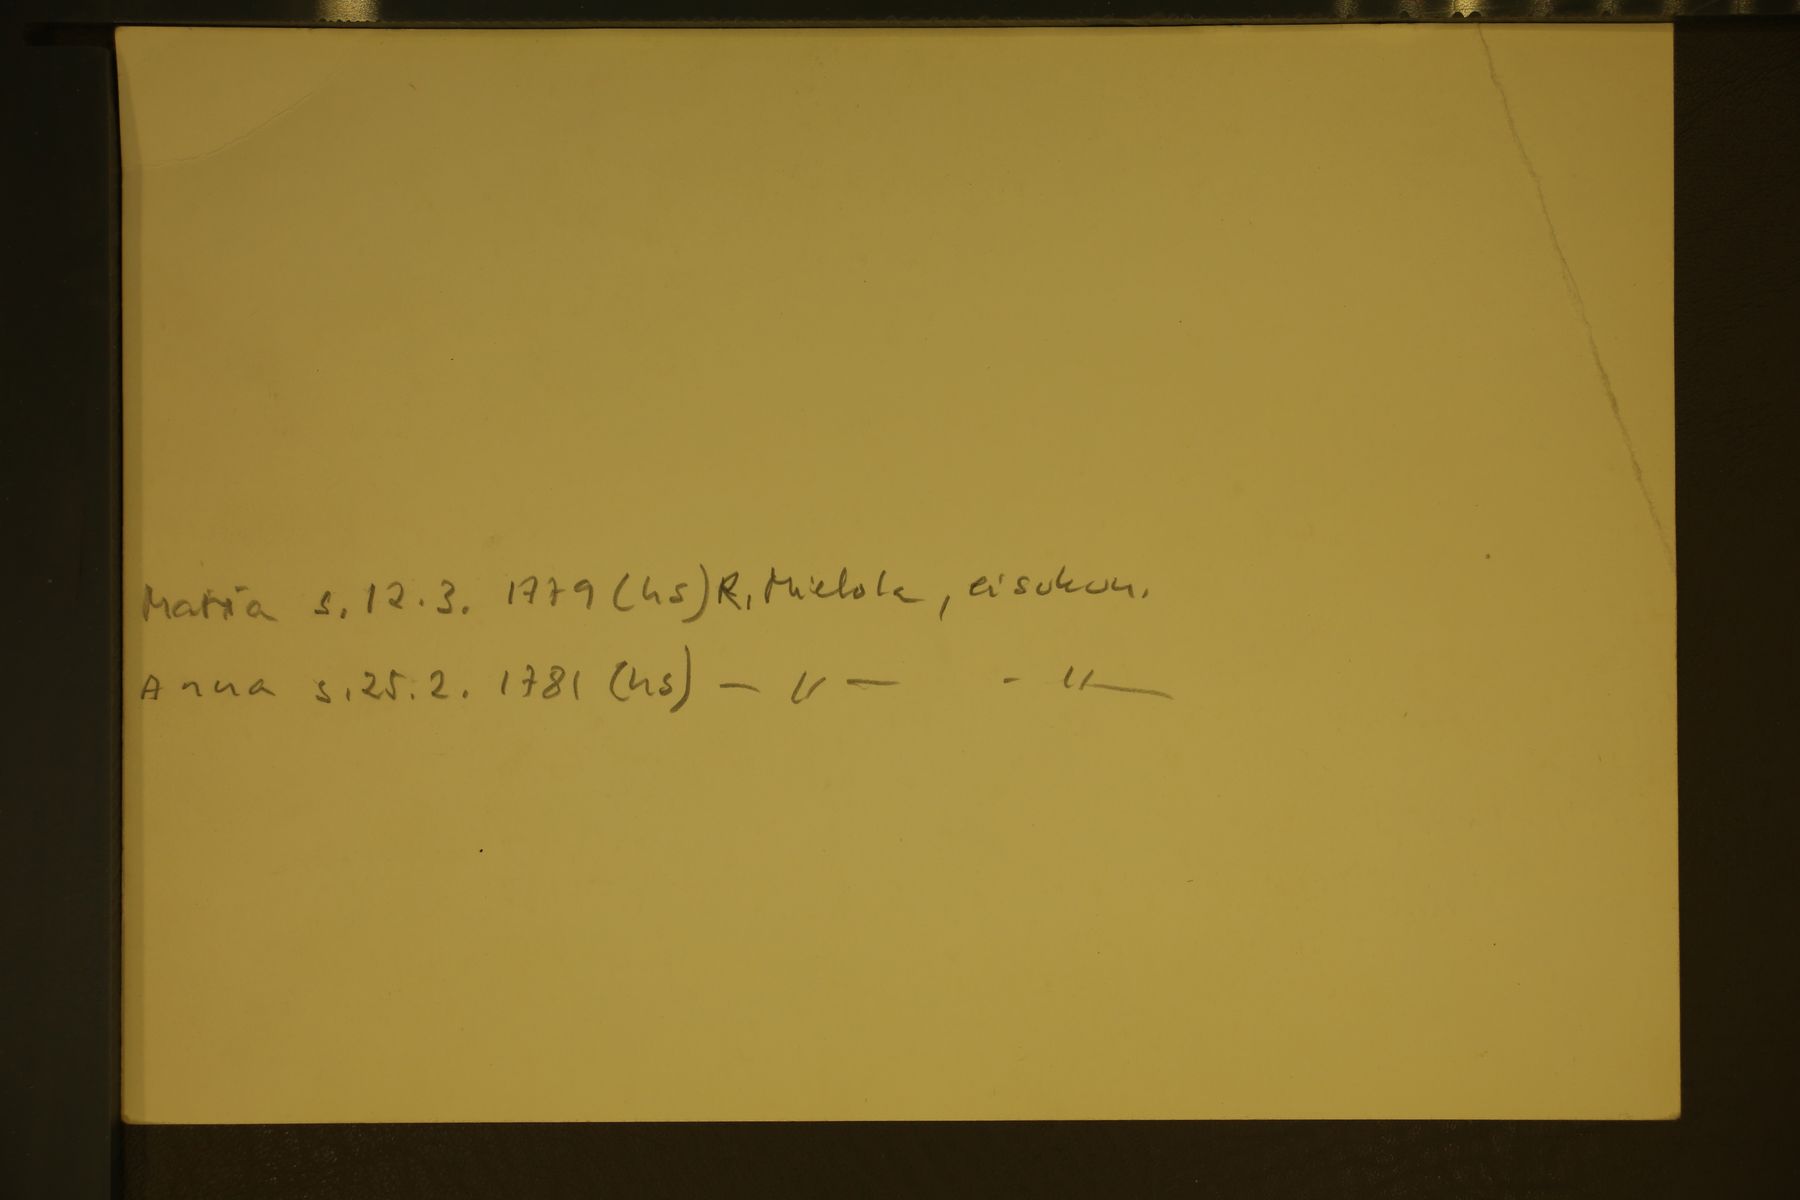 Maria s. 12.3. 1779 (hs) R. Mielola, ei sukun.
Anna s. 25.2. 1781 (hs) — " — - " —